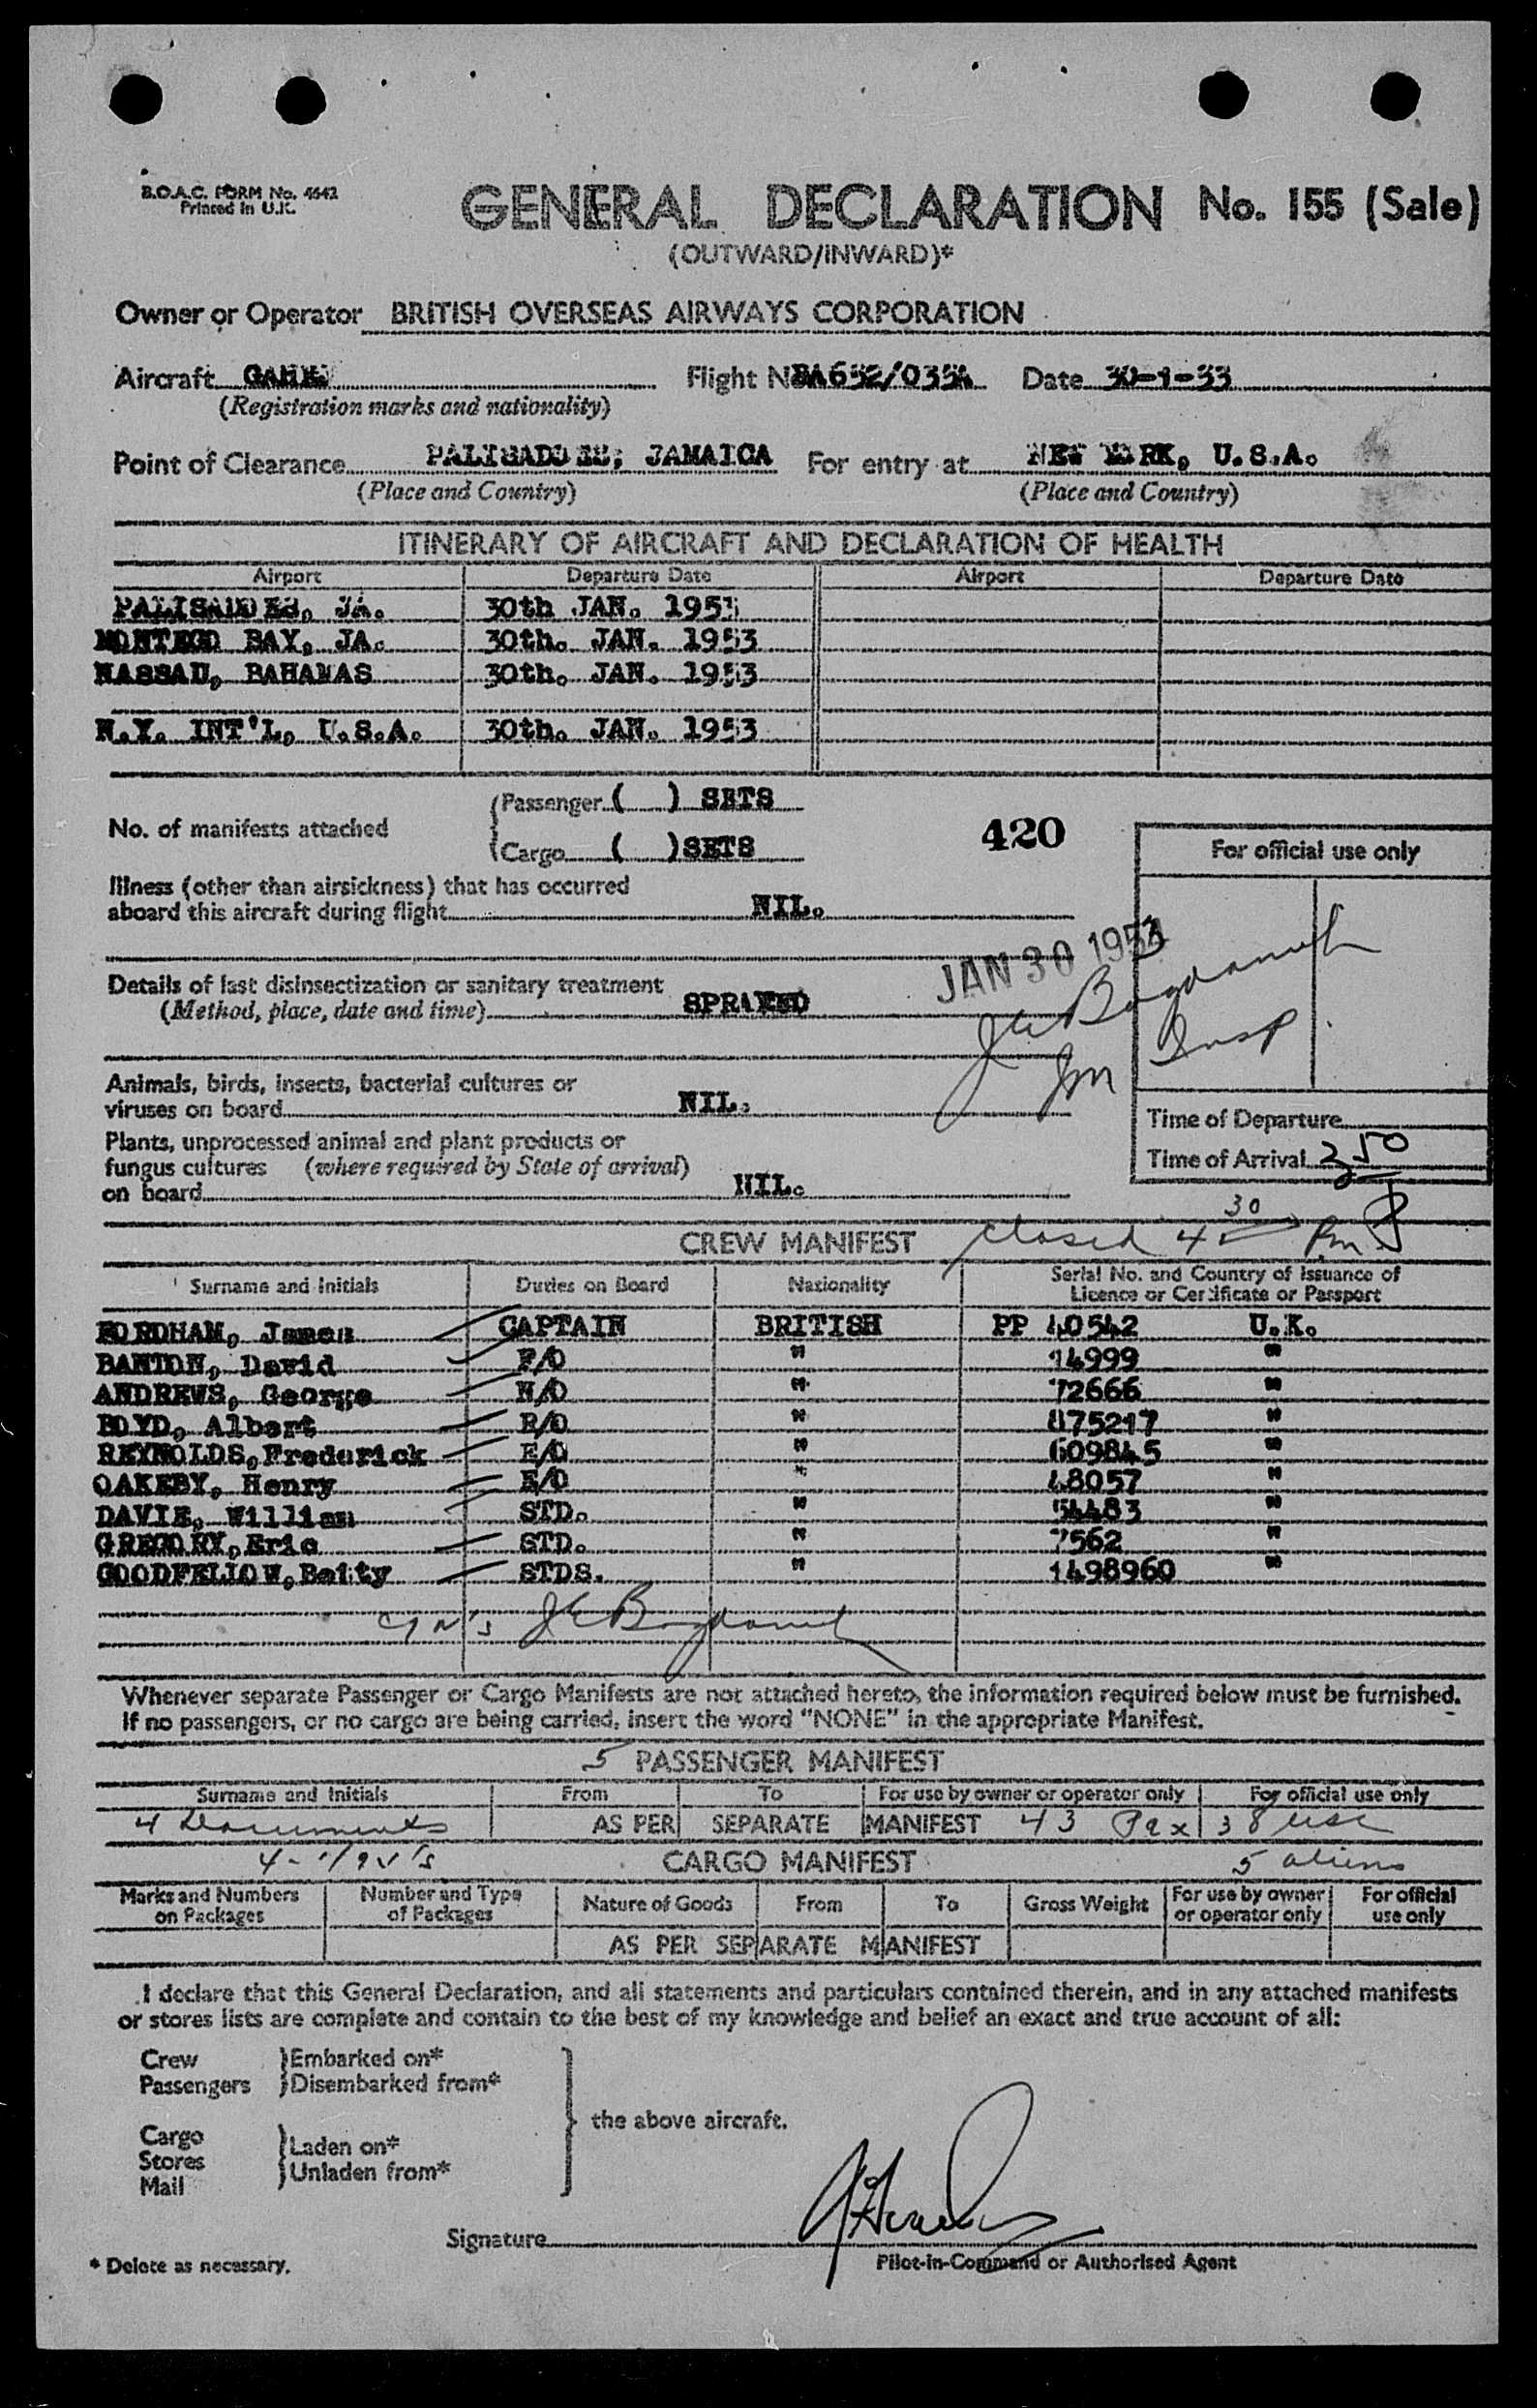 B.O.A.C. FORM No. 4642
Printed in U.K.
GENERAL DECLARATION No. 155 (Sale)
(OUTWARD/INWARD)*
Owner or Operator BRITISH OVERSEAS AIRWAYS CORPORATION
Aircraft Flight No BA652/035A Date 30-1-53
(Registration marks and nationality)
Point of Clearance PALISADOES, JAMAICA For entry at NEW YORK, U.S.A.
(Place and Country) (Place and Country)
ITINERARY OF AIRCRAFT AND DECLARATION OF HEALTH
Airport Departure Date Airport Departure Date
PALISADOES, JA. 30th JAN. 1953
MONTEGO BAY, JA. 30th. JAN. 1953
NASSAU, BAHAMAS 30th. JAN. 1953
N.Y. INT'L, U.S.A. 30th. JAN. 1953
No. of manifests attached
Passenger ( ) SETS
Cargo ( )SETS
420
For official use only
Illness (other than airsickness) that has occurred
aboard this aircraft during flight NIL.
JAN 30 1953
Details of last disinsectization or sanitary treatment
(Method, place, date and time) SPRAYED
Insp
Animals, birds, insects, bacterial cultures or
viruses on board NIL.
Time of Departure
Plants, unprocessed animal and plant products or
fungus cultures (where required by State of arrival)
on board NIL.
Time of Arrival 350
closed 4 30 Pm
CREW MANIFEST
Surname and Initials Duties on Board Nationality Serial No. and Country of Issuance of
Licence or Certificate or Passport
FORDHAM, James CAPTAIN BRITISH PP 40542 U.K.
BANTON, David F/O " 14999 "
ANDREWS, George N/O " 72666 "
BOYD, Albert R/O " 875217 "
REYNOLDS, Frederick E/O " 609845 "
OAKEBY, Henry E/O " 48057 "
DAVIE, William STD. " 54483 "
GREGORY, Eric STD. " 7562 "
GOODFELLOW, Betty STDS. " 1498960 "
Whenever separate Passenger or Cargo Manifests are not attached hereto, the information required below must be furnished.
If no passengers, or no cargo are being carried, insert the word "NONE" in the appropriate Manifest.
5 PASSENGER MANIFEST
Surname and Initials From To For use by owner or operator only For official use only
4 Documents AS PER SEPARATE MANIFEST 43 Pax 38 usc
CARGO MANIFEST 5 aliens
Marks and Numbers
on Packages
Number and Type
of Packages
Nature of Goods From To Gross Weight
For use by owner
or operator only
For official
use only
AS PER SEPARATE MANIFEST
I declare that this General Declaration, and all statements and particulars contained therein, and in any attached manifests
or stores lists are complete and contain to the best of my knowledge and belief an exact and true account of all:
Crew
Passengers
Embarked on*
Disembarked from*
the above aircraft.
Cargo
Stores
Mail
Laden on*
Unladen from*
Signature
Pilot-in-Command or Authorised Agent
* Delete as necessary.